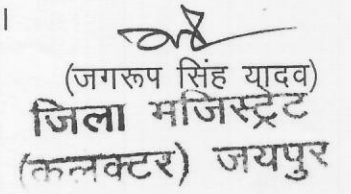 (जगरूप सिंह यादव)
जिला मजिस्ट्रेट
(कलक्टर) जयपुर